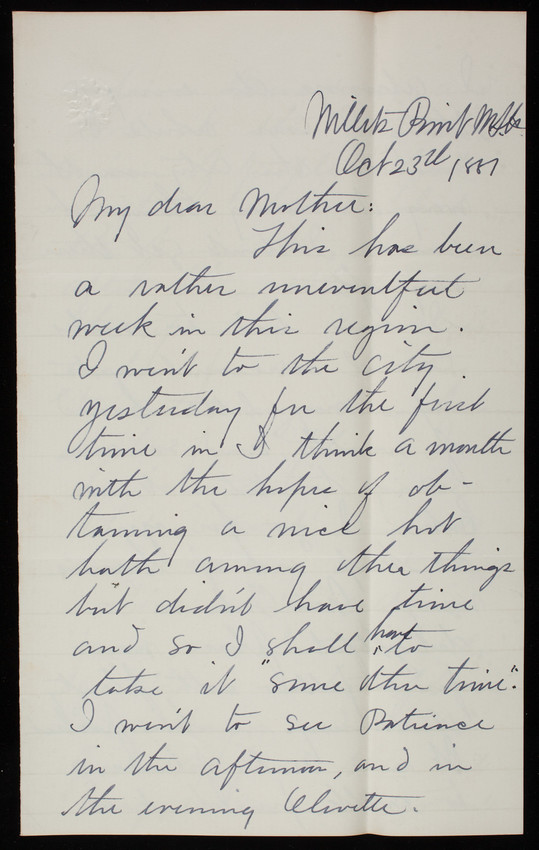 Willets Point N.Y.
Oct 23rd 1881
My dear Mother:
This has been
a rather uneventful
week in this region.
I went to the city
yesterday for the first
time in I think a month
with the hope of ob-
taining a nice hot
bath among other things
but didn't have time
and so I shall have to
take it "some other time".
I went to see Patience
in the afternoon, and in
the evening Olivette.